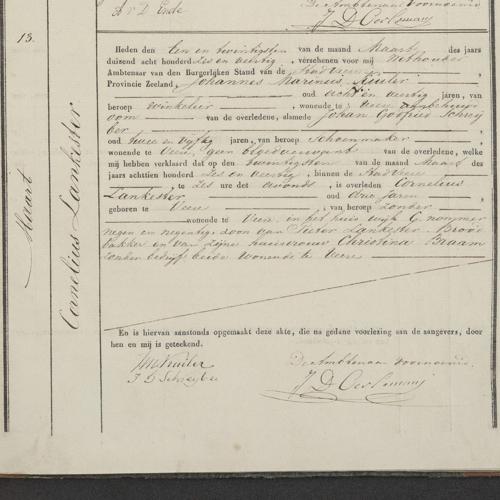 A v D Ende
De Ambtenaar voornoemd
J D Oerlemans
13.
Maart
Cornelius Lankester
Heden den Een en twintigsten van de maand Maart des jaars
duizend acht honderd Zes en veertig, verschenen voor mij Wethouder
Ambtenaar van den Burgerlijken Stand van de Stad Veere
Provincie Zeeland, Johannes Marinus Ruiter
oud acht en veertig jaren, van
beroep winkelier, wonende te Veere aanbehuwd
oom van de overledene, alsmede Johan Godfried Schreij
ber
oud twee en vijftig jaren, van beroep Schoenmaker
wonende te Veere, geen bloedverwant van de overledene, welke
mij hebben verklaard dat op den twintigsten van de maand Maart des
jaars achttien honderd Zes en veertig, binnen de Stad Veere
te Zes ure des avonds, is overleden Cornelius
Lankester oud drie jaren,
geboren te Veere, van beroep zonder
wonende te Veere, in het huis wijk G. nommer
negen en negentig zoon van Pieter Lankester Brood
bakker en van Zijne huisvrouw Christina Braam
zonder bedrijf beide wonende te Veere
En is hiervan aanstonds opgemaakt deze akte, die na gedane voorlezing aan de aangevers, door
hen en mij is geteekend.
JM Ruiter
J G Schreyber
De Ambtenaar voornoemd.
J D Oerlemans